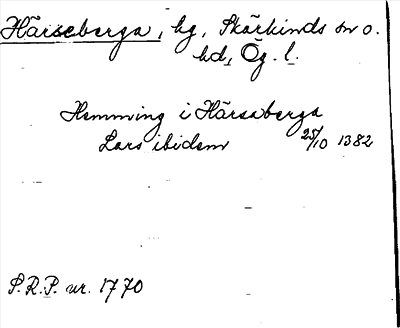 Härseberga, hg, Skärkinds sn o.
hd, Ög. l.
Hemming i Härsaberga
Lars ibidem 25/10 1382
S.R.P. nr. 1770